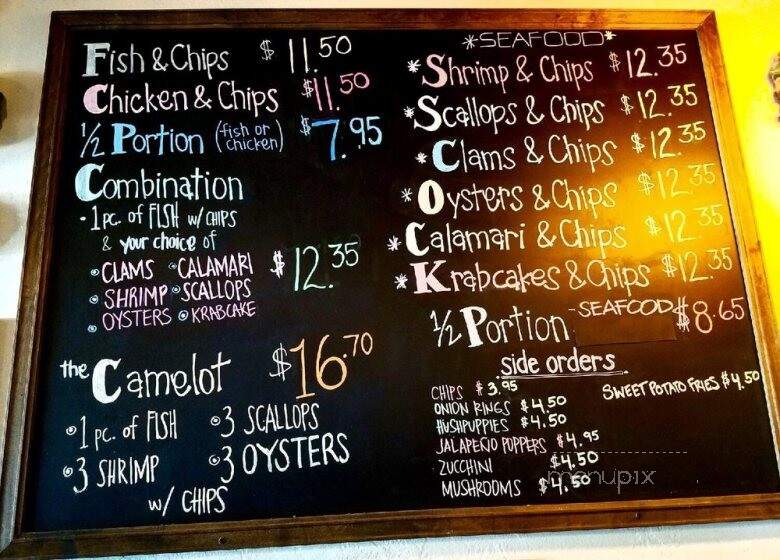 Fish & Chips $ 11.50
Chicken & Chips $11.50
1/2 Portion (fish or chicken) $7.95
Combination
• 1 pc. of FISH w/ CHIPS
& your choice of
• CLAMS • CALAMARI $12.35
• SHRIMP • SCALLOPS
• OYSTERS • KRABCAKE
the Camelot $16.70
• 1 pc. of FISH • 3 SCALLOPS
• 3 SHRIMP • 3 OYSTERS
w/ CHIPS
*SEAFOOD*
*Shrimp & Chips $12.35
*Scallops & Chips $12.35
*Clams & Chips $12.35
*Oysters & Chips $12.35
*Calamari & Chips $12.35
*Krabcakes & Chips $12.35
1/2 Portion -SEAFOOD $8.65
side orders
CHIPS $3.95 SWEET POTATO FRIES $4.50
ONION RINGS $4.50
HUSHPUPPIES $4.50
JALAPEÑO POPPERS $4.95
ZUCCHINI $4.50
MUSHROOMS $4.50
menupix